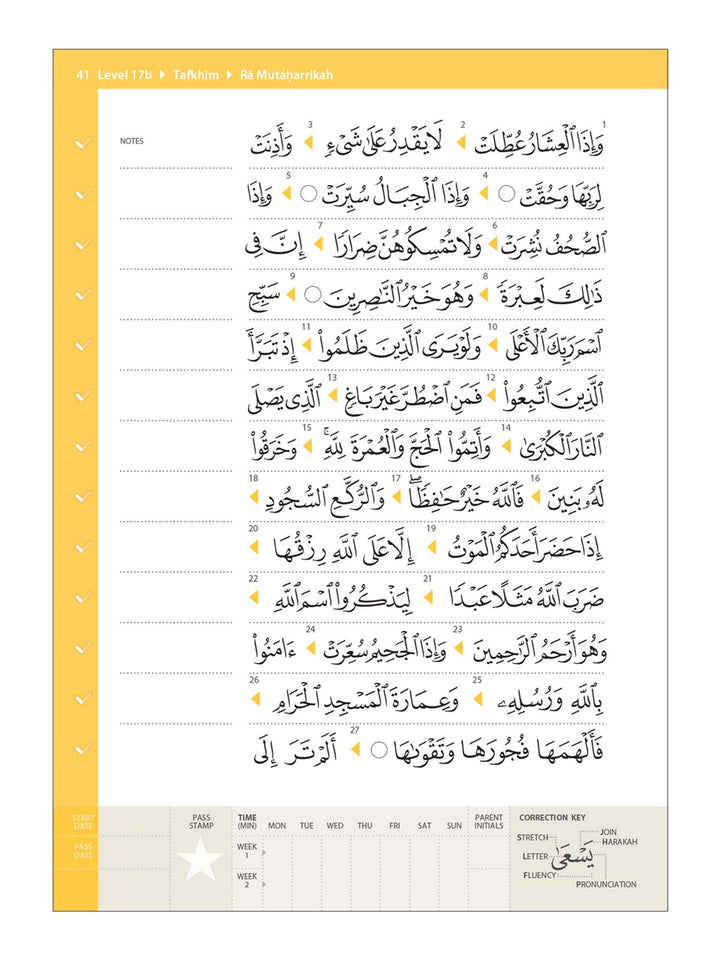 41 Level 17b ▶ Tafkhīm ▶ Rā Mutaḥarrikah
NOTES
1 وَإِذَا ٱلْعِشَارُ عُطِّلَتْ 2 لَا يَقْدِرُ عَلَىٰ شَىْءٍ 3 وَأَذِنَتْ
لِرَبِّهَا وَحُقَّتْ ۝ 4 وَإِذَا ٱلْجِبَالُ سُيِّرَتْ ۝ 5 وَإِذَا
ٱلصُّحُفُ نُشِرَتْ 6 وَلَا تُمْسِكُوهُنَّ ضِرَارًا 7 إِنَّ فِى
ذَٰلِكَ لَعِبْرَةً 8 وَهُوَ خَيْرُ ٱلنَّـٰصِرِينَ ۝ 9 سَبِّحِ
ٱسْمَ رَبِّكَ ٱلْأَعْلَى 10 وَلَوْ يَرَى ٱلَّذِينَ ظَلَمُوا۟ 11 إِذْ تَبَرَّأَ
ٱلَّذِينَ ٱتُّبِعُوا۟ 12 فَمَنِ ٱضْطُرَّ غَيْرَ بَاغٍ 13 ٱلَّذِى يَصْلَى
ٱلنَّارَ ٱلْكُبْرَىٰ 14 وَأَتِمُّوا۟ ٱلْحَجَّ وَٱلْعُمْرَةَ لِلَّهِ ۚ 15 وَخَرَقُوا۟
لَهُۥ بَنِينَ 16 فَٱللَّهُ خَيْرٌ حَـٰفِظًا ۖ 17 وَٱلرُّكَّعِ ٱلسُّجُودِ 18
إِذَا حَضَرَ أَحَدَكُمُ ٱلْمَوْتُ 19 إِلَّا عَلَى ٱللَّهِ رِزْقُهَا 20
ضَرَبَ ٱللَّهُ مَثَلًا عَبْدًا 21 لِيَذْكُرُوا۟ ٱسْمَ ٱللَّهِ 22
وَهُوَ أَرْحَمُ ٱلرَّٰحِمِينَ 23 وَإِذَا ٱلْجَحِيمُ سُعِّرَتْ 24 ءَامَنُوا۟
بِٱللَّهِ وَرُسُلِهِۦ 25 وَعِمَارَةَ ٱلْمَسْجِدِ ٱلْحَرَامِ 26
فَأَلْهَمَهَا فُجُورَهَا وَتَقْوَىٰهَا ۝ 27 أَلَمْ تَرَ إِلَى
START DATE
PASS DATE
PASS STAMP
TIME (MIN) MON TUE WED THU FRI SAT SUN PARENT INITIALS
WEEK 1
WEEK 2
CORRECTION KEY
STRETCH
JOIN
HARAKAH
LETTER
يَسْعَىٰ
FLUENCY
PRONUNCIATION